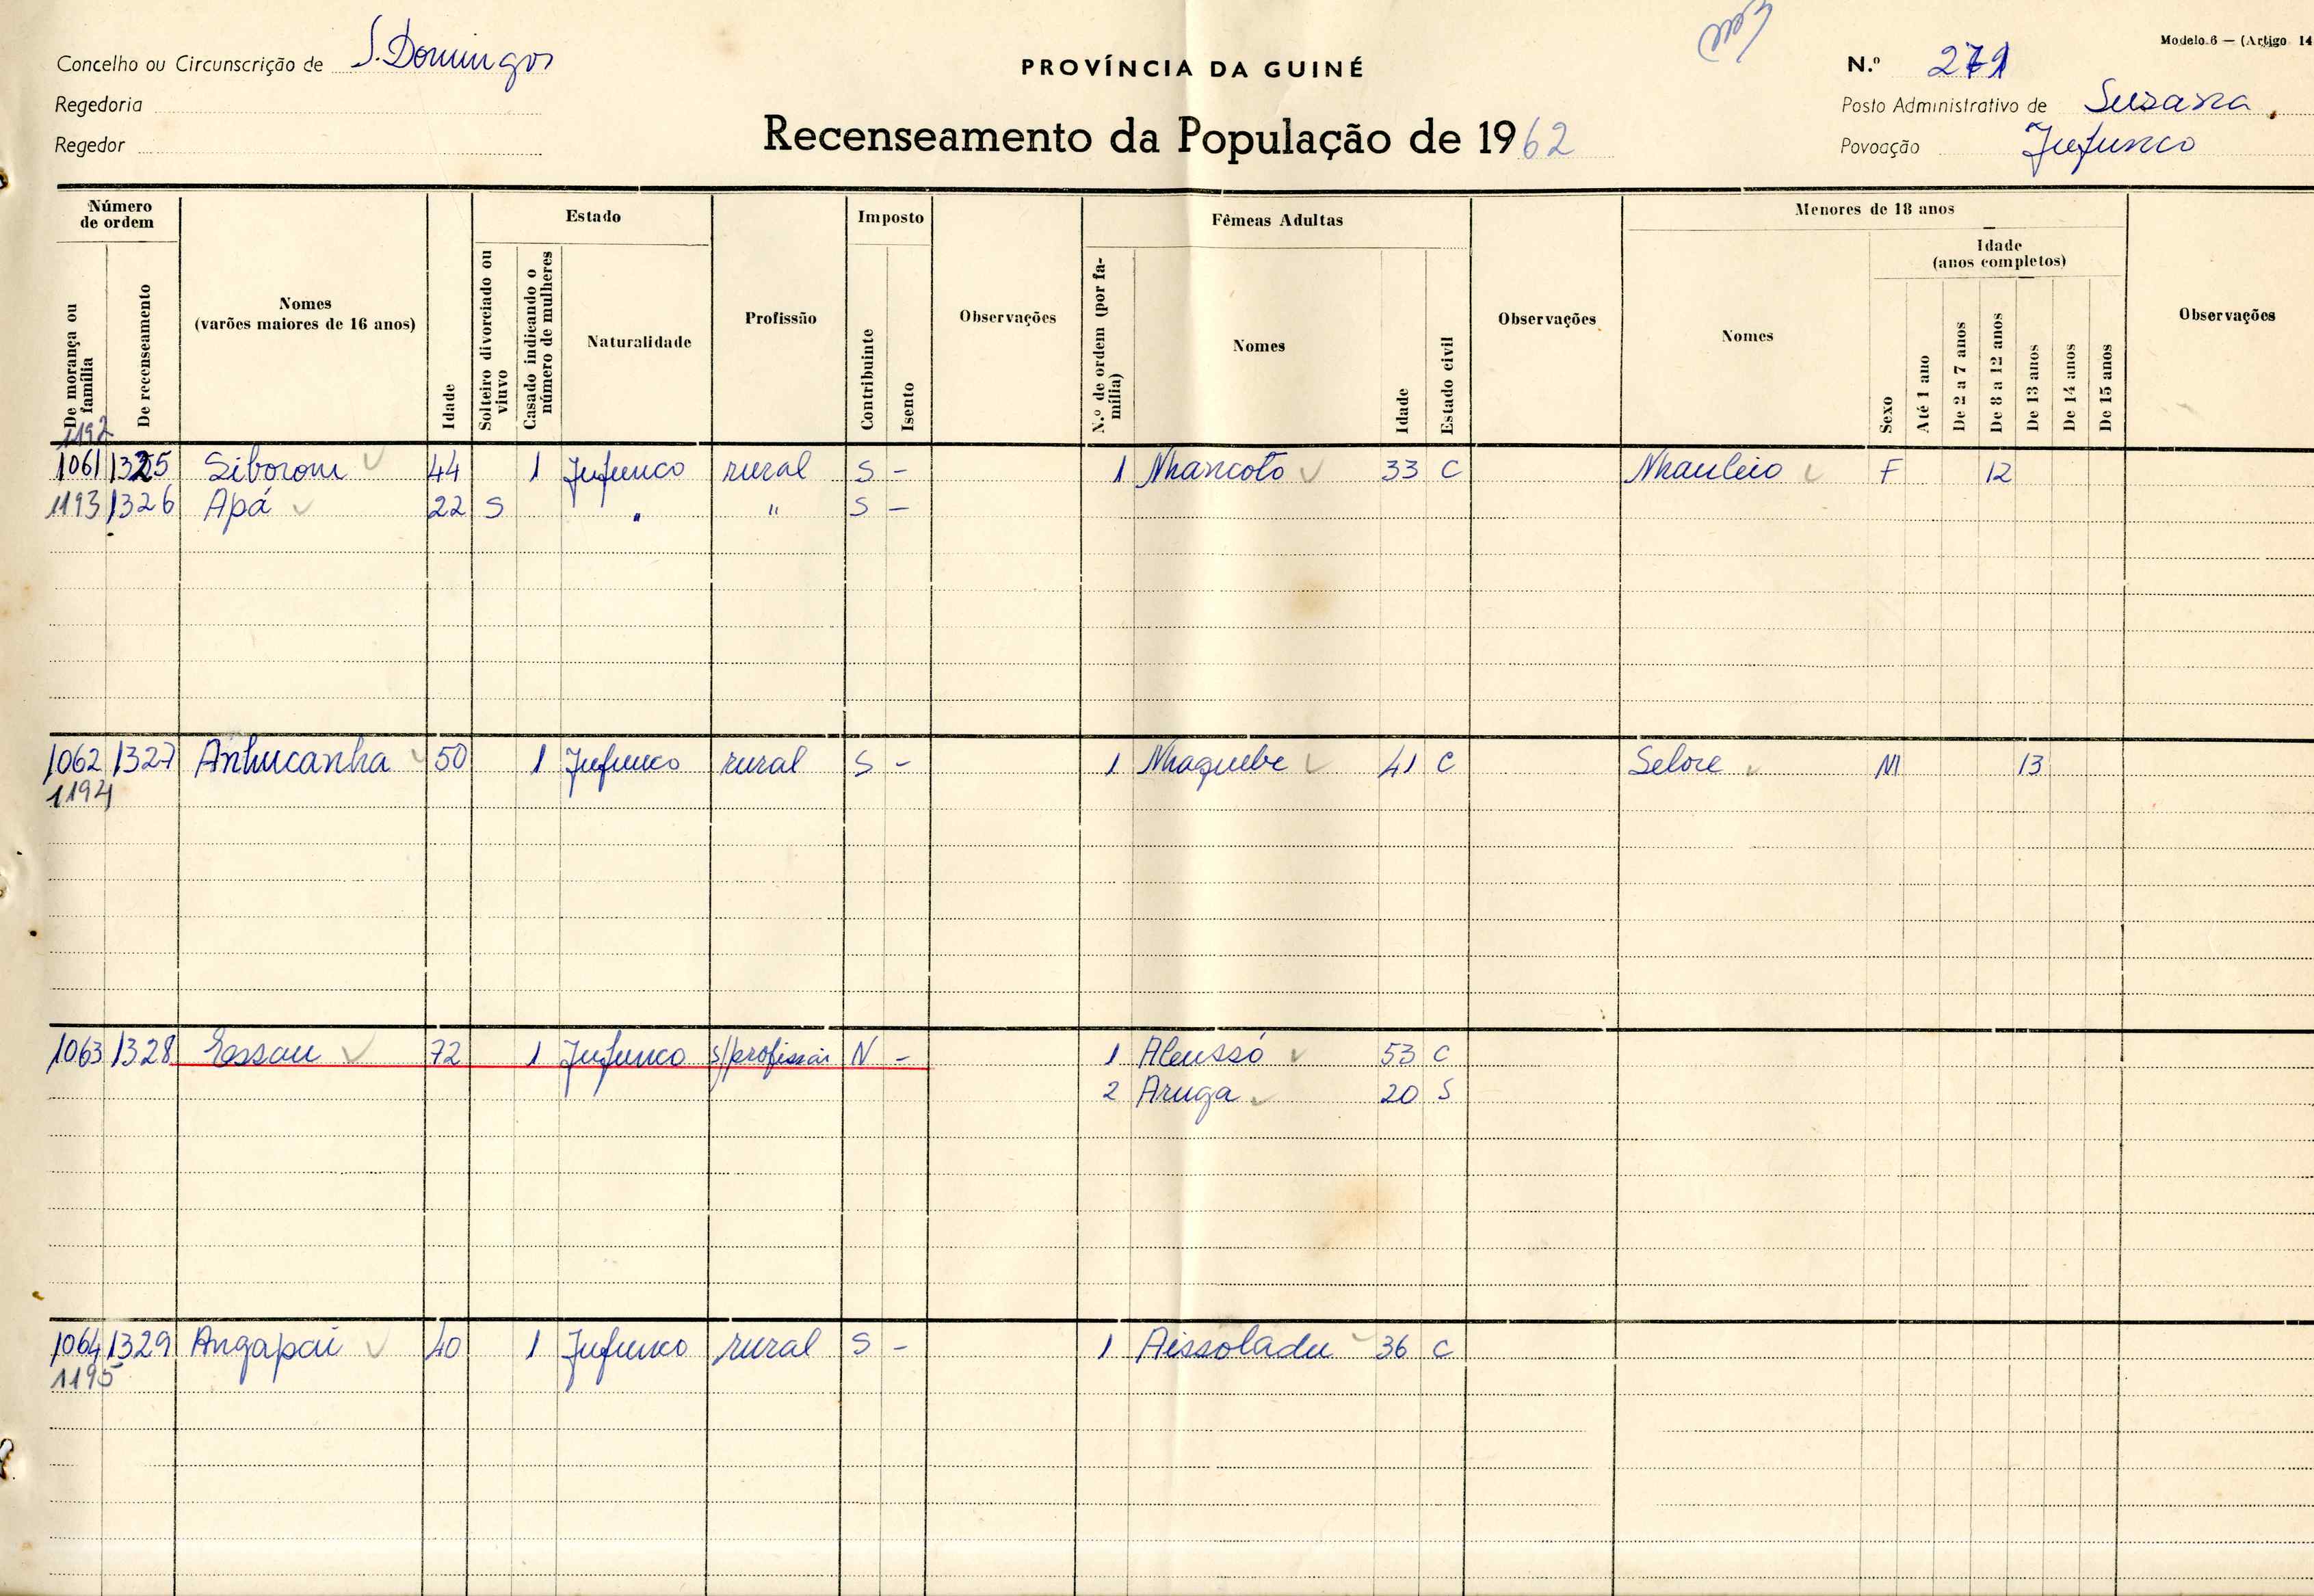 Modelo 6 — (Artigo 14
Concelho ou Circunscrição de S. Domingos
PROVÍNCIA DA GUINÉ
N.º 271
Regedoria
Posto Administrativo de Suzana
Regedor
Recenseamento da População de 1962
Povoação Jufunco
Número de ordem
Estado
Imposto
Fêmeas Adultas
Menores de 18 anos
Idade (anos completos)
De morança ou família
De recenseamento
Nomes (varões maiores de 16 anos)
Idade
Solteiro divorciado ou viuvo
Casado indicando o número de mulheres
Naturalidade
Profissão
Contribuinte
Isento
Observações
N.º de ordem (por família)
Nomes
Idade
Estado civil
Observações
Nomes
Sexo
Até 1 ano
De 2 a 7 anos
De 8 a 12 anos
De 13 anos
De 14 anos
De 15 anos
Observações
1192
1061 1325 Siborom 44 1 Jufunco rural S - 1 Nhancoto 33 C Nhauleio F 12
1193 1326 Apá 22 S " " S -
1062 1327 Anhucanha 50 1 Jufunco rural S - 1 Nhaquebe 41 C Selore M 13
1194
1063 1328 Essau 72 1 Jufunco s/profissão N - 1 Aleussó 53 C
2 Aruga 20 S
1064 1329 Angapai 40 1 Jufunco rural S - 1 Aissoladu 36 C
1195